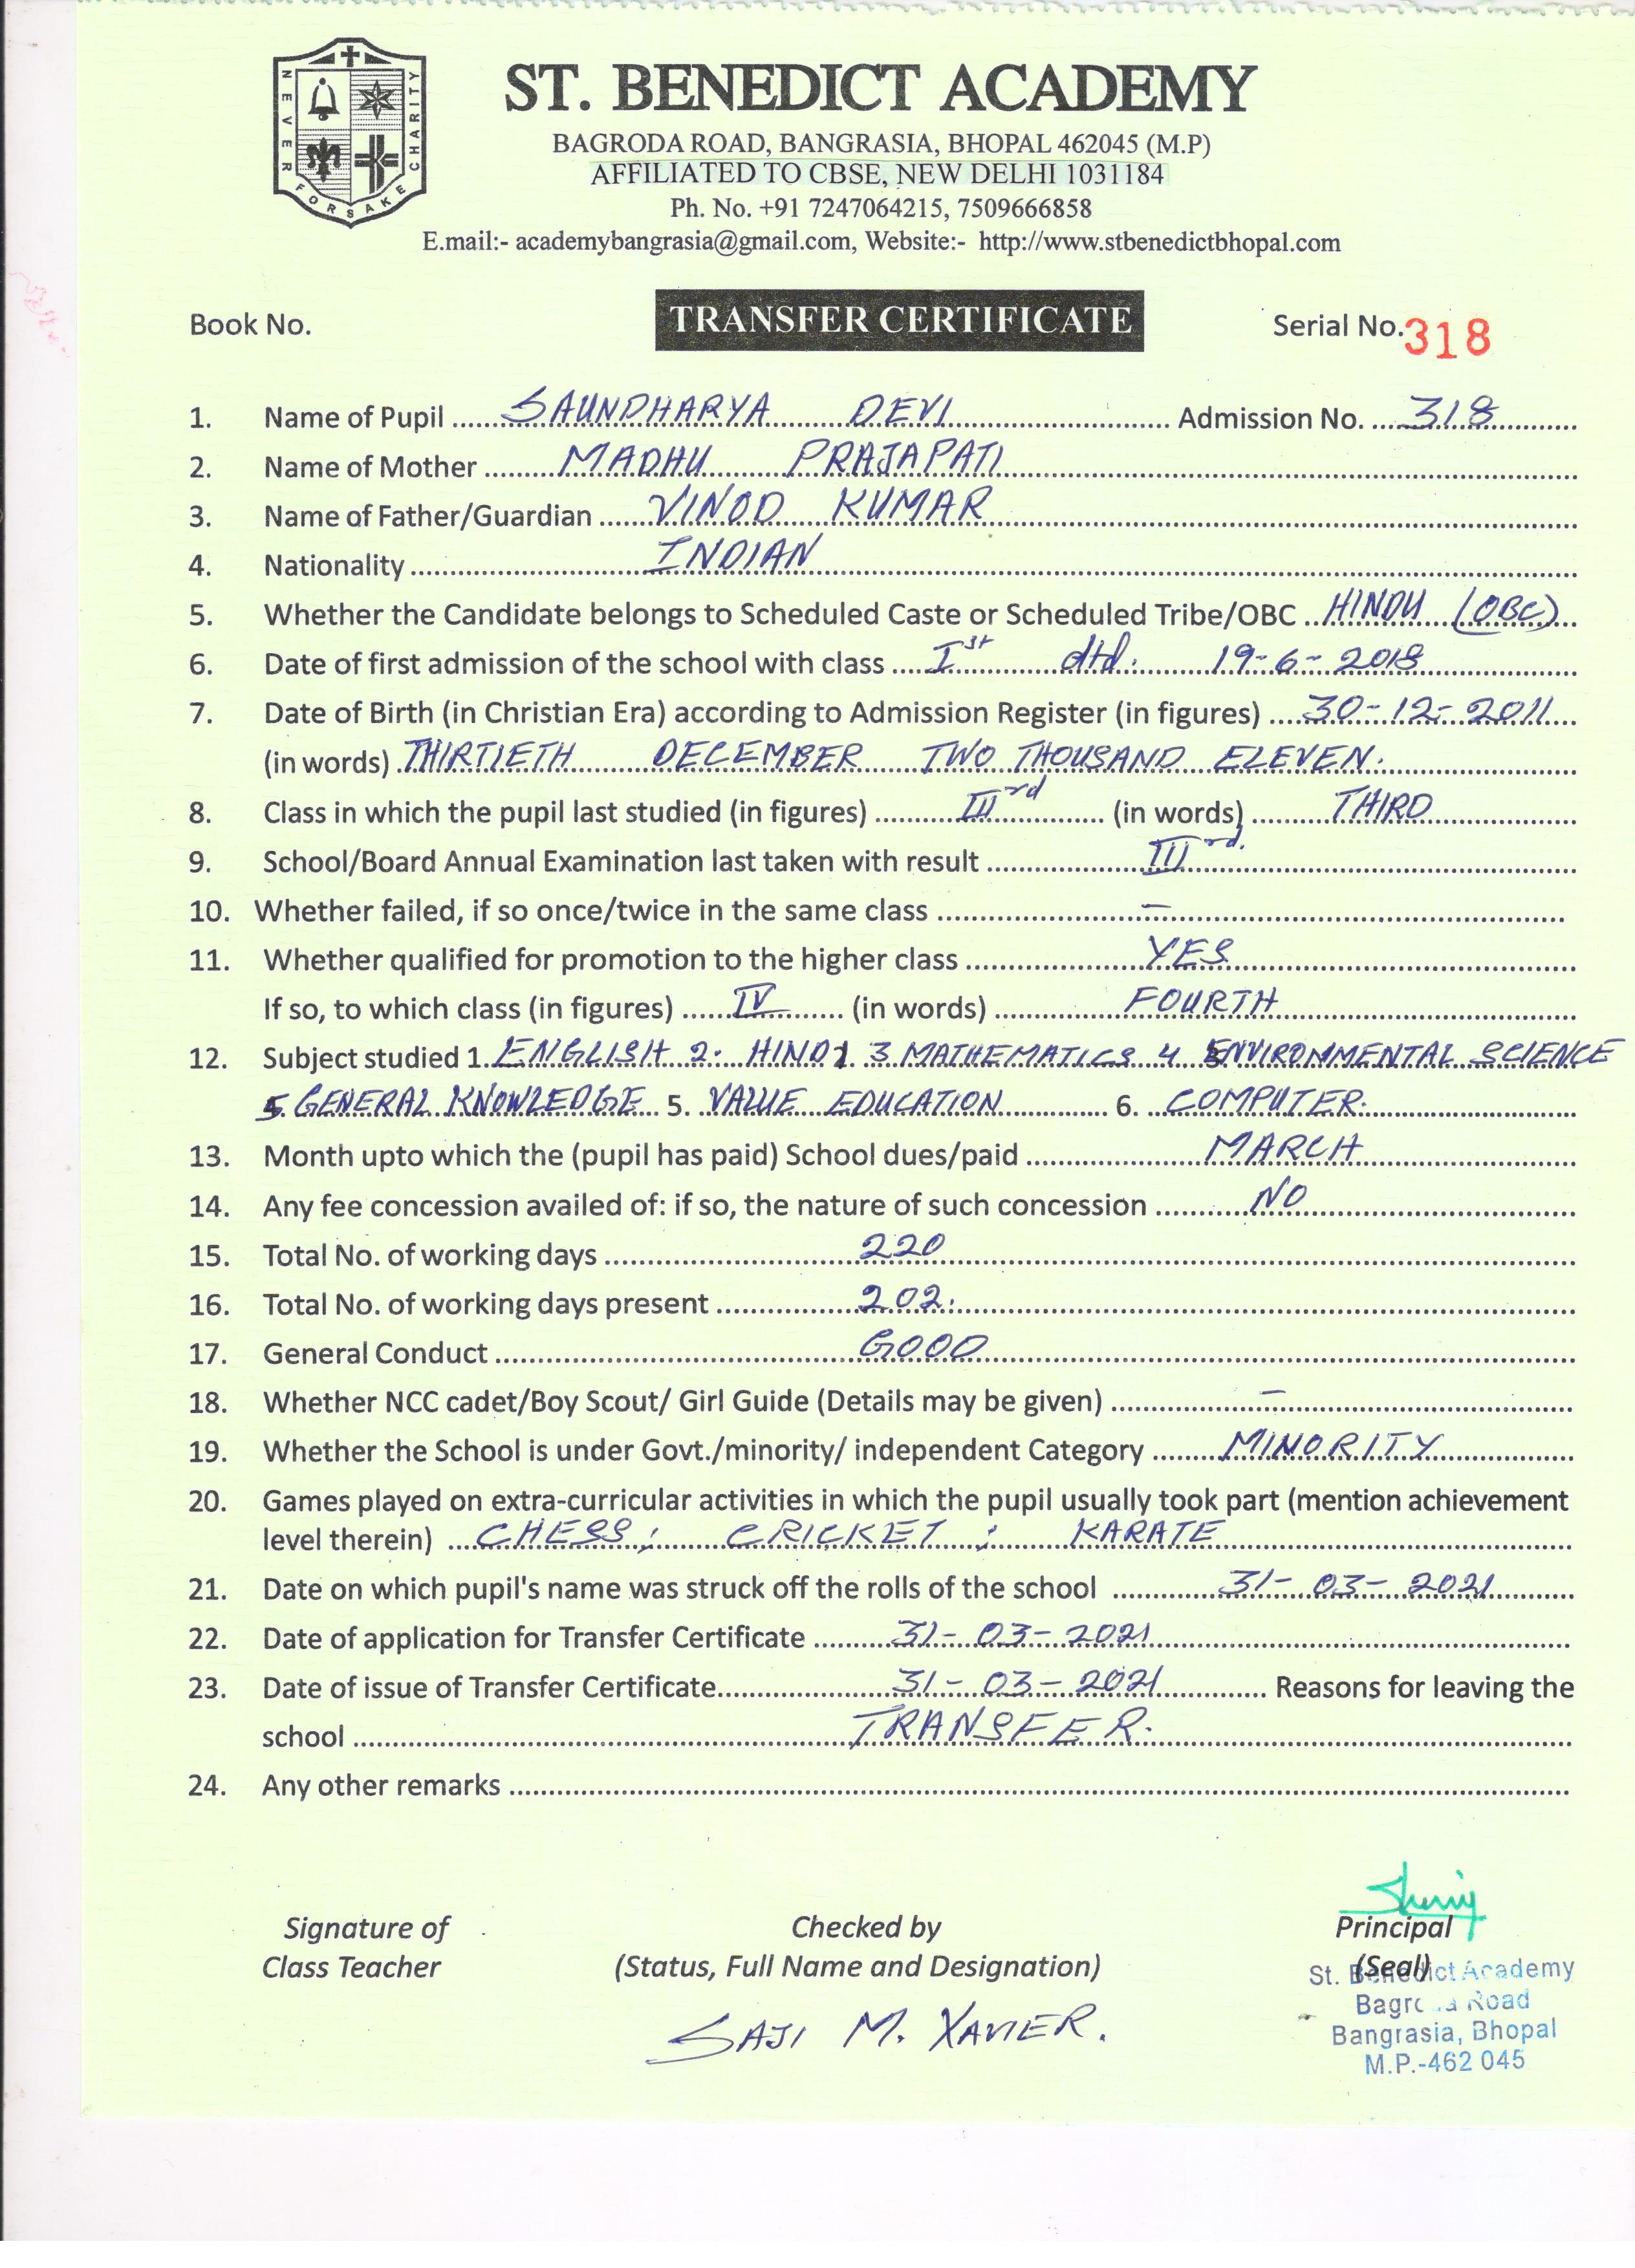 NEVER FORSAKE CHARITY
ST. BENEDICT ACADEMY
BAGRODA ROAD, BANGRASIA, BHOPAL 462045 (M.P)
AFFILIATED TO CBSE, NEW DELHI 1031184
Ph. No. +91 7247064215, 7509666858
E.mail:- academybangrasia@gmail.com, Website:- http://www.stbenedictbhopal.com
Book No. TRANSFER CERTIFICATE Serial No. 318
1. Name of Pupil SAUNDHARYA DEVI Admission No. 318
2. Name of Mother MADHU PRAJAPATI
3. Name of Father/Guardian VINOD KUMAR
4. Nationality INDIAN
5. Whether the Candidate belongs to Scheduled Caste or Scheduled Tribe/OBC HINDU (OBC)
6. Date of first admission of the school with class Ist dtd: 19-6-2018
7. Date of Birth (in Christian Era) according to Admission Register (in figures) 30-12-2011
(in words) THIRTIETH DECEMBER TWO THOUSAND ELEVEN.
8. Class in which the pupil last studied (in figures) IIIrd (in words) THIRD
9. School/Board Annual Examination last taken with result IIIrd.
10. Whether failed, if so once/twice in the same class –
11. Whether qualified for promotion to the higher class YES
If so, to which class (in figures) IV (in words) FOURTH
12. Subject studied 1. ENGLISH 2. HINDI 3. MATHEMATICS 4 ENVIRONMENTAL SCIENCE
5. GENERAL KNOWLEDGE 5. VALUE EDUCATION 6. COMPUTER.
13. Month upto which the (pupil has paid) School dues/paid MARCH
14. Any fee concession availed of: if so, the nature of such concession NO
15. Total No. of working days 220
16. Total No. of working days present 202.
17. General Conduct GOOD
18. Whether NCC cadet/Boy Scout/ Girl Guide (Details may be given) –
19. Whether the School is under Govt./minority/ independent Category MINORITY
20. Games played on extra-curricular activities in which the pupil usually took part (mention achievement
level therein) CHESS; CRICKET; KARATE
21. Date on which pupil's name was struck off the rolls of the school 31-03-2021
22. Date of application for Transfer Certificate 31-03-2021
23. Date of issue of Transfer Certificate 31-03-2021 Reasons for leaving the
school TRANSFER.
24. Any other remarks
Signature of Checked by Principal
Class Teacher (Status, Full Name and Designation) (Seal)
SAJI M. XAVIER.
St. Benedict Academy
Bagroda Road
Bangrasia, Bhopal
M.P.-462 045